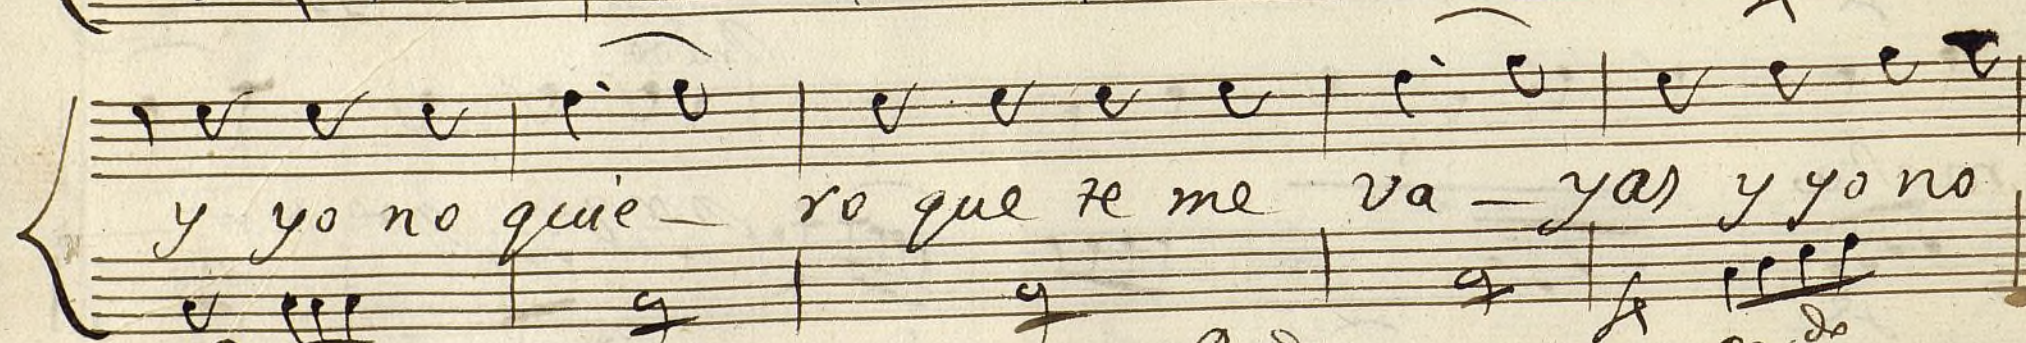 y yo no quie – ro que te me va – yas y yo no